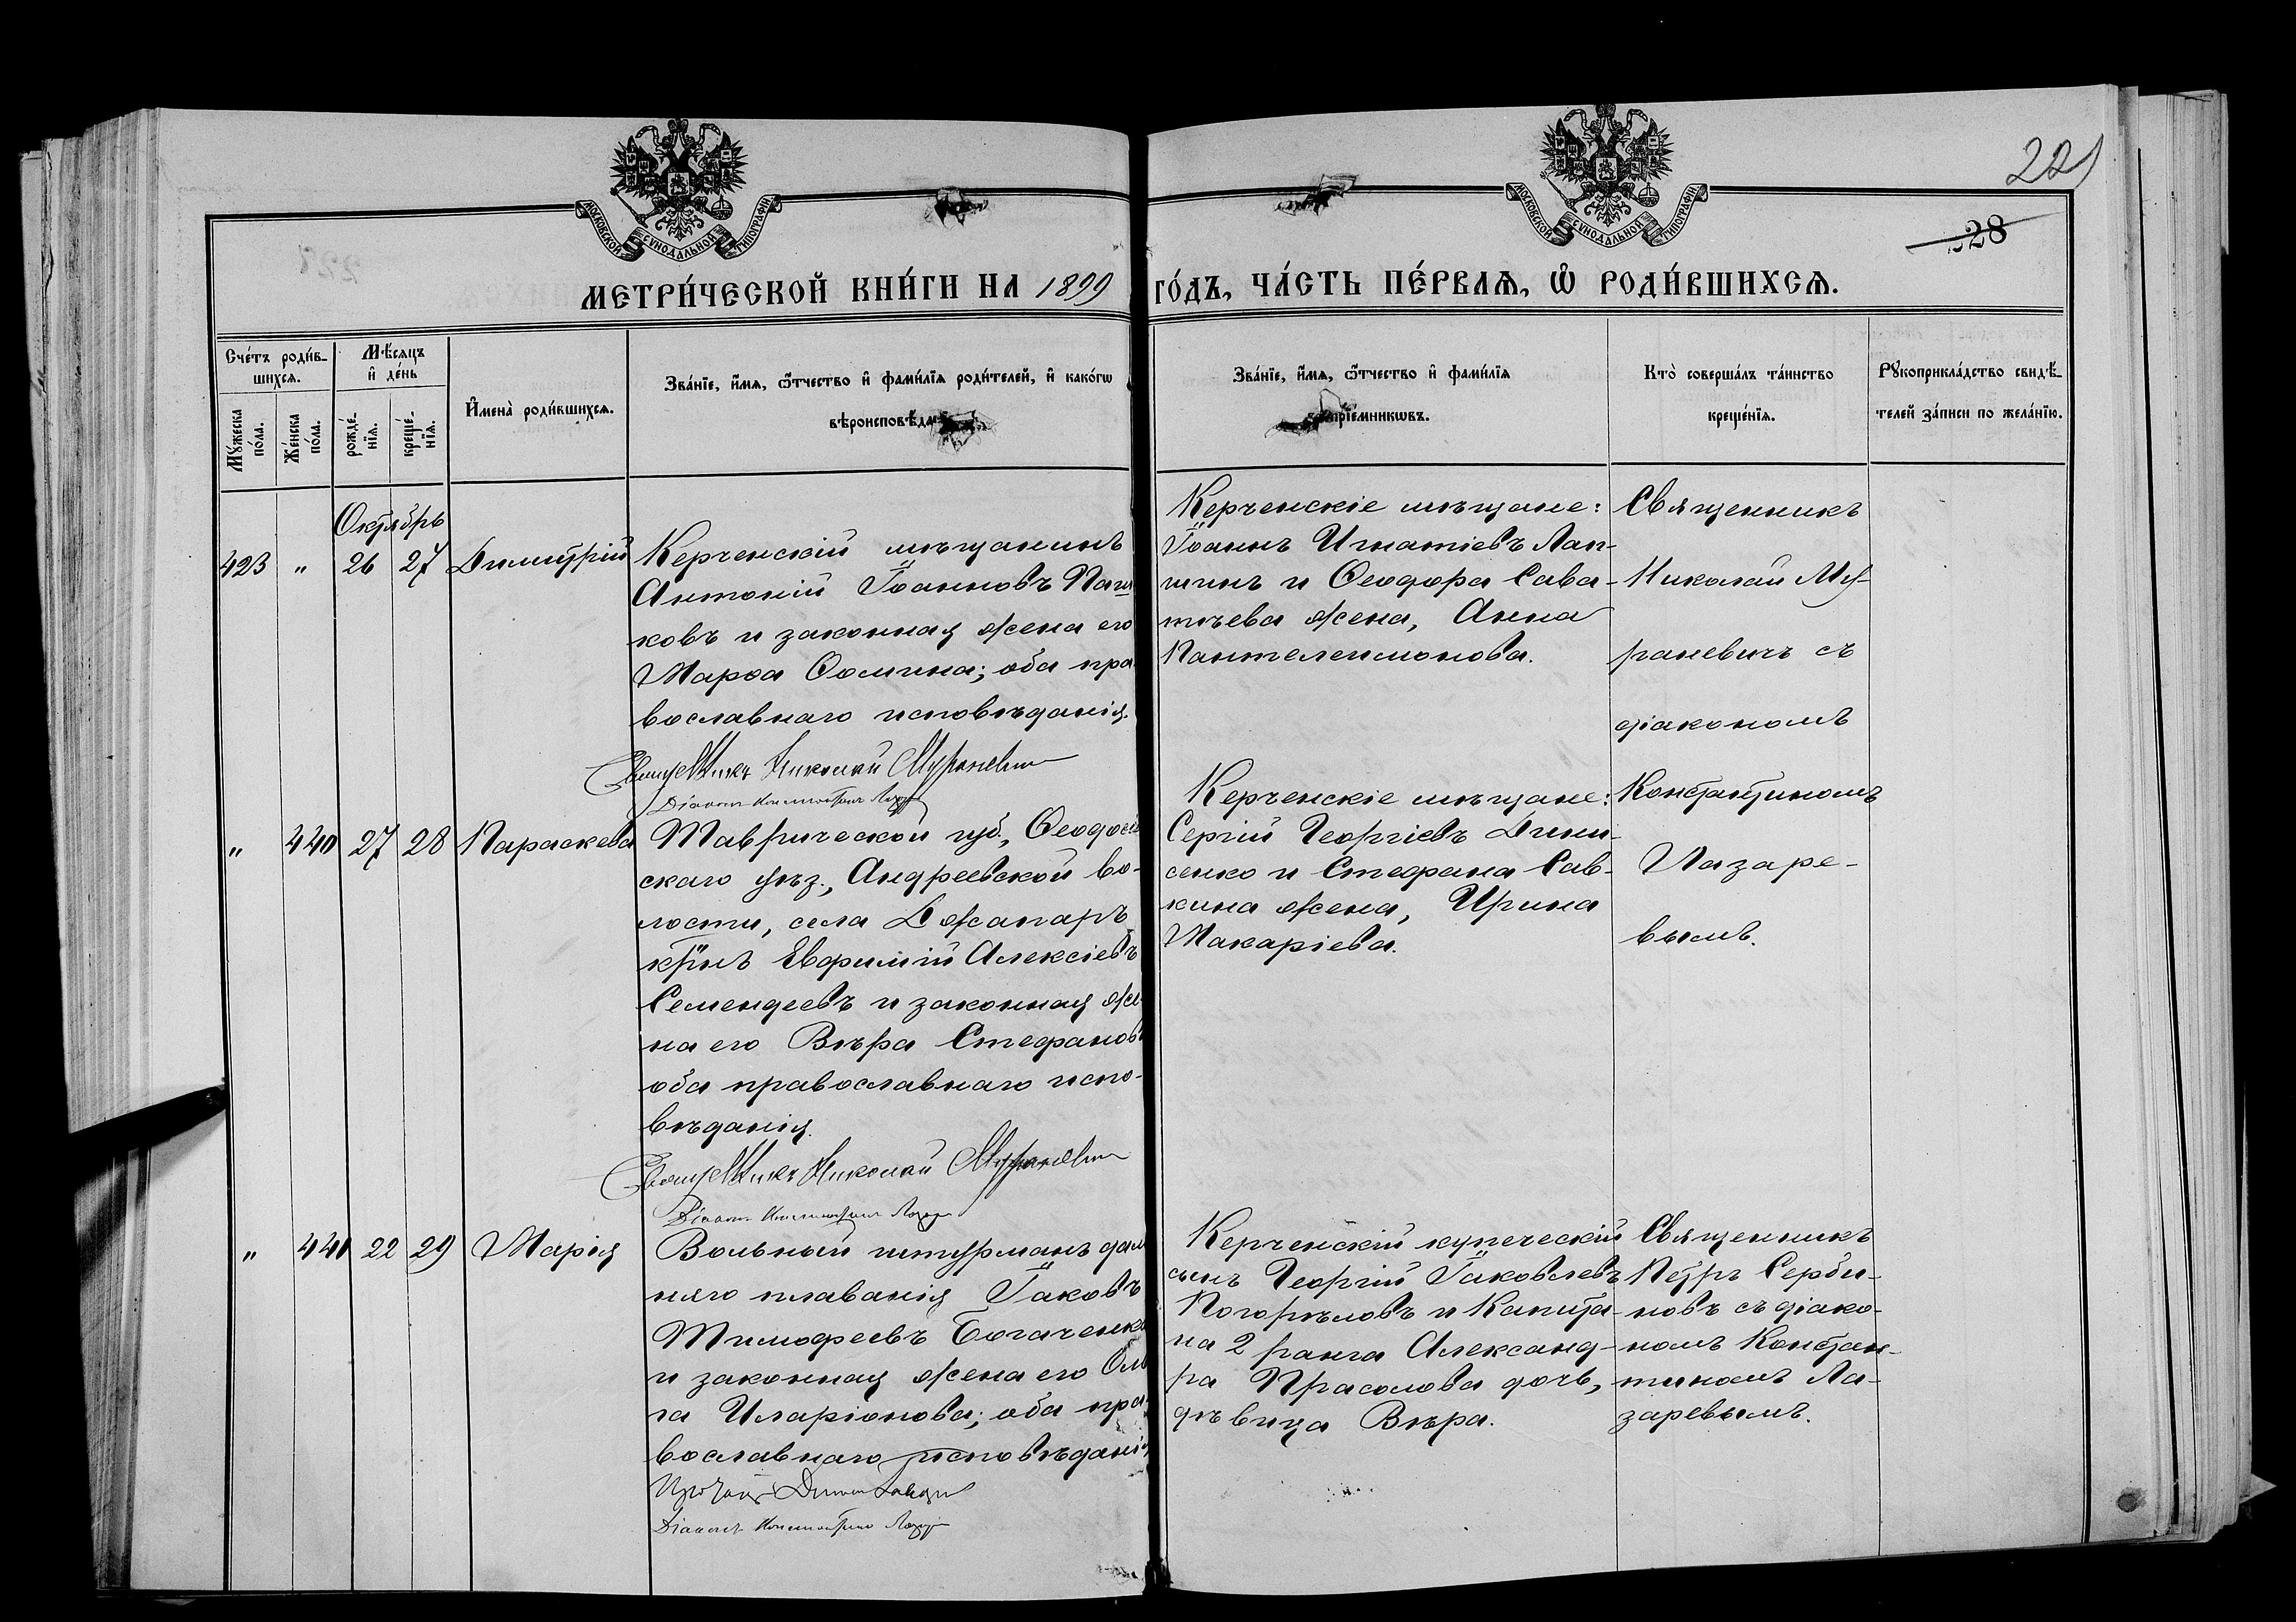 МОСКОВСКОЙ СУНОДАЛЬНОЙ ТИПОГРАФІИ
МОСКОВСКОЙ СУНОДАЛЬНОЙ ТИПОГРАФІИ
221
28
МЕТРИ́ЧЕСКОЙ КНИ́ГИ НА 1899 ГО́ДЪ, ЧА́СТЬ ПЕ́РВАѦ, Ѡ РОДИ́ВШИХСѦ.
Сче́тъ роди́в-
шихсѧ.
Мꙋ́жеска по́ла.
Же́нска по́ла.
Мѣ́сѧцъ
и҆ де́нь
рожде́-
нїѧ.
креще́-
нїѧ.
И҆мена̀ роди́вшихсѧ.
Зва́нїе, и҆́мѧ, ѻ҆́тчество и҆ фами́лїѧ роди́телей, и҆ како́гѡ
вѣроисповѣда
Зва́нїе, и҆́мѧ, ѻ҆́тчество и҆ фами́лїѧ
прїе́мникѡвъ.
Кто̀ соверша́лъ та́инство
креще́нїѧ.
Рꙋкоприкла́дство свидѣ́-
телей за́писи по жела́нїю.
Октябрь
423 " 26 27 Димитрій
Керченскій мѣщанинъ
Антоній Іоанновъ Паш
ковъ и законная жена его
Марѳа Ѳомина; оба пра
вославнаго исповѣданія.
Священникъ Николай Мураневич
Діаконъ Константинъ Лазарев
Керченскіе мѣщане:
Іоаннъ Игнатіевъ Лап-
шинъ и Ѳеодора Сава-
тѣева жена, Анна
Пантелеимонова.
Священникъ
Николай Му-
раневичъ съ
діакономъ
Константиномъ
Лазаре-
вымъ.
" 440 27 28 Параскева
Таврической губ., Ѳеодосій
скаго уѣз., Андреевской во-
лости, села Джапаръ
кр̃нъ Евфимій Алексіевъ
Семендеевъ и законная же
на его Вѣра Стефанов
оба православнаго испо-
вѣданія.
Священникъ Николай Мураневич
Діаконъ Константинъ Лазарев
Керченскіе мѣщане:
Сергій Георгіевъ Дини-
сенко и Стефана Сав-
кина жена, Ирина
Макаріева.
" 441 22 29 Марія
Вольный штурманъ даль
няго плаванія Іаковъ
Тимофеевъ Богаченко
и законная жена его Оль
га Иларіонова; оба пра
вославнаго исповѣданія
Діаконъ Константинъ Лазарев
Керченскій купеческій
сынъ Георгій Іаковлевъ
Погорѣловъ и Капита-
на 2 ранга Александ-
ра Прасолова дочь,
дѣвица Вѣра.
Священникъ
Петръ Серби-
новъ съ діако-
номъ Констан-
тиномъ Ла-
заревымъ.